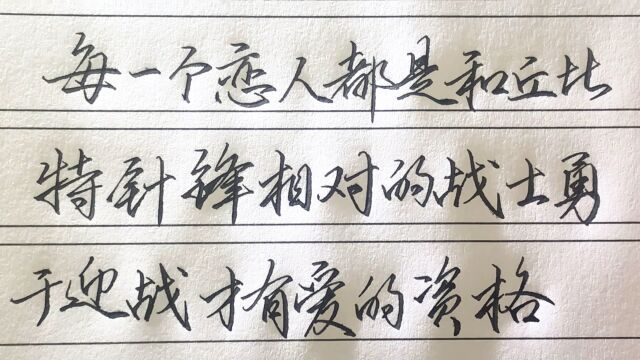 每一个恋人都是和丘比
特针锋相对的战士勇
于迎战才有爱的资格